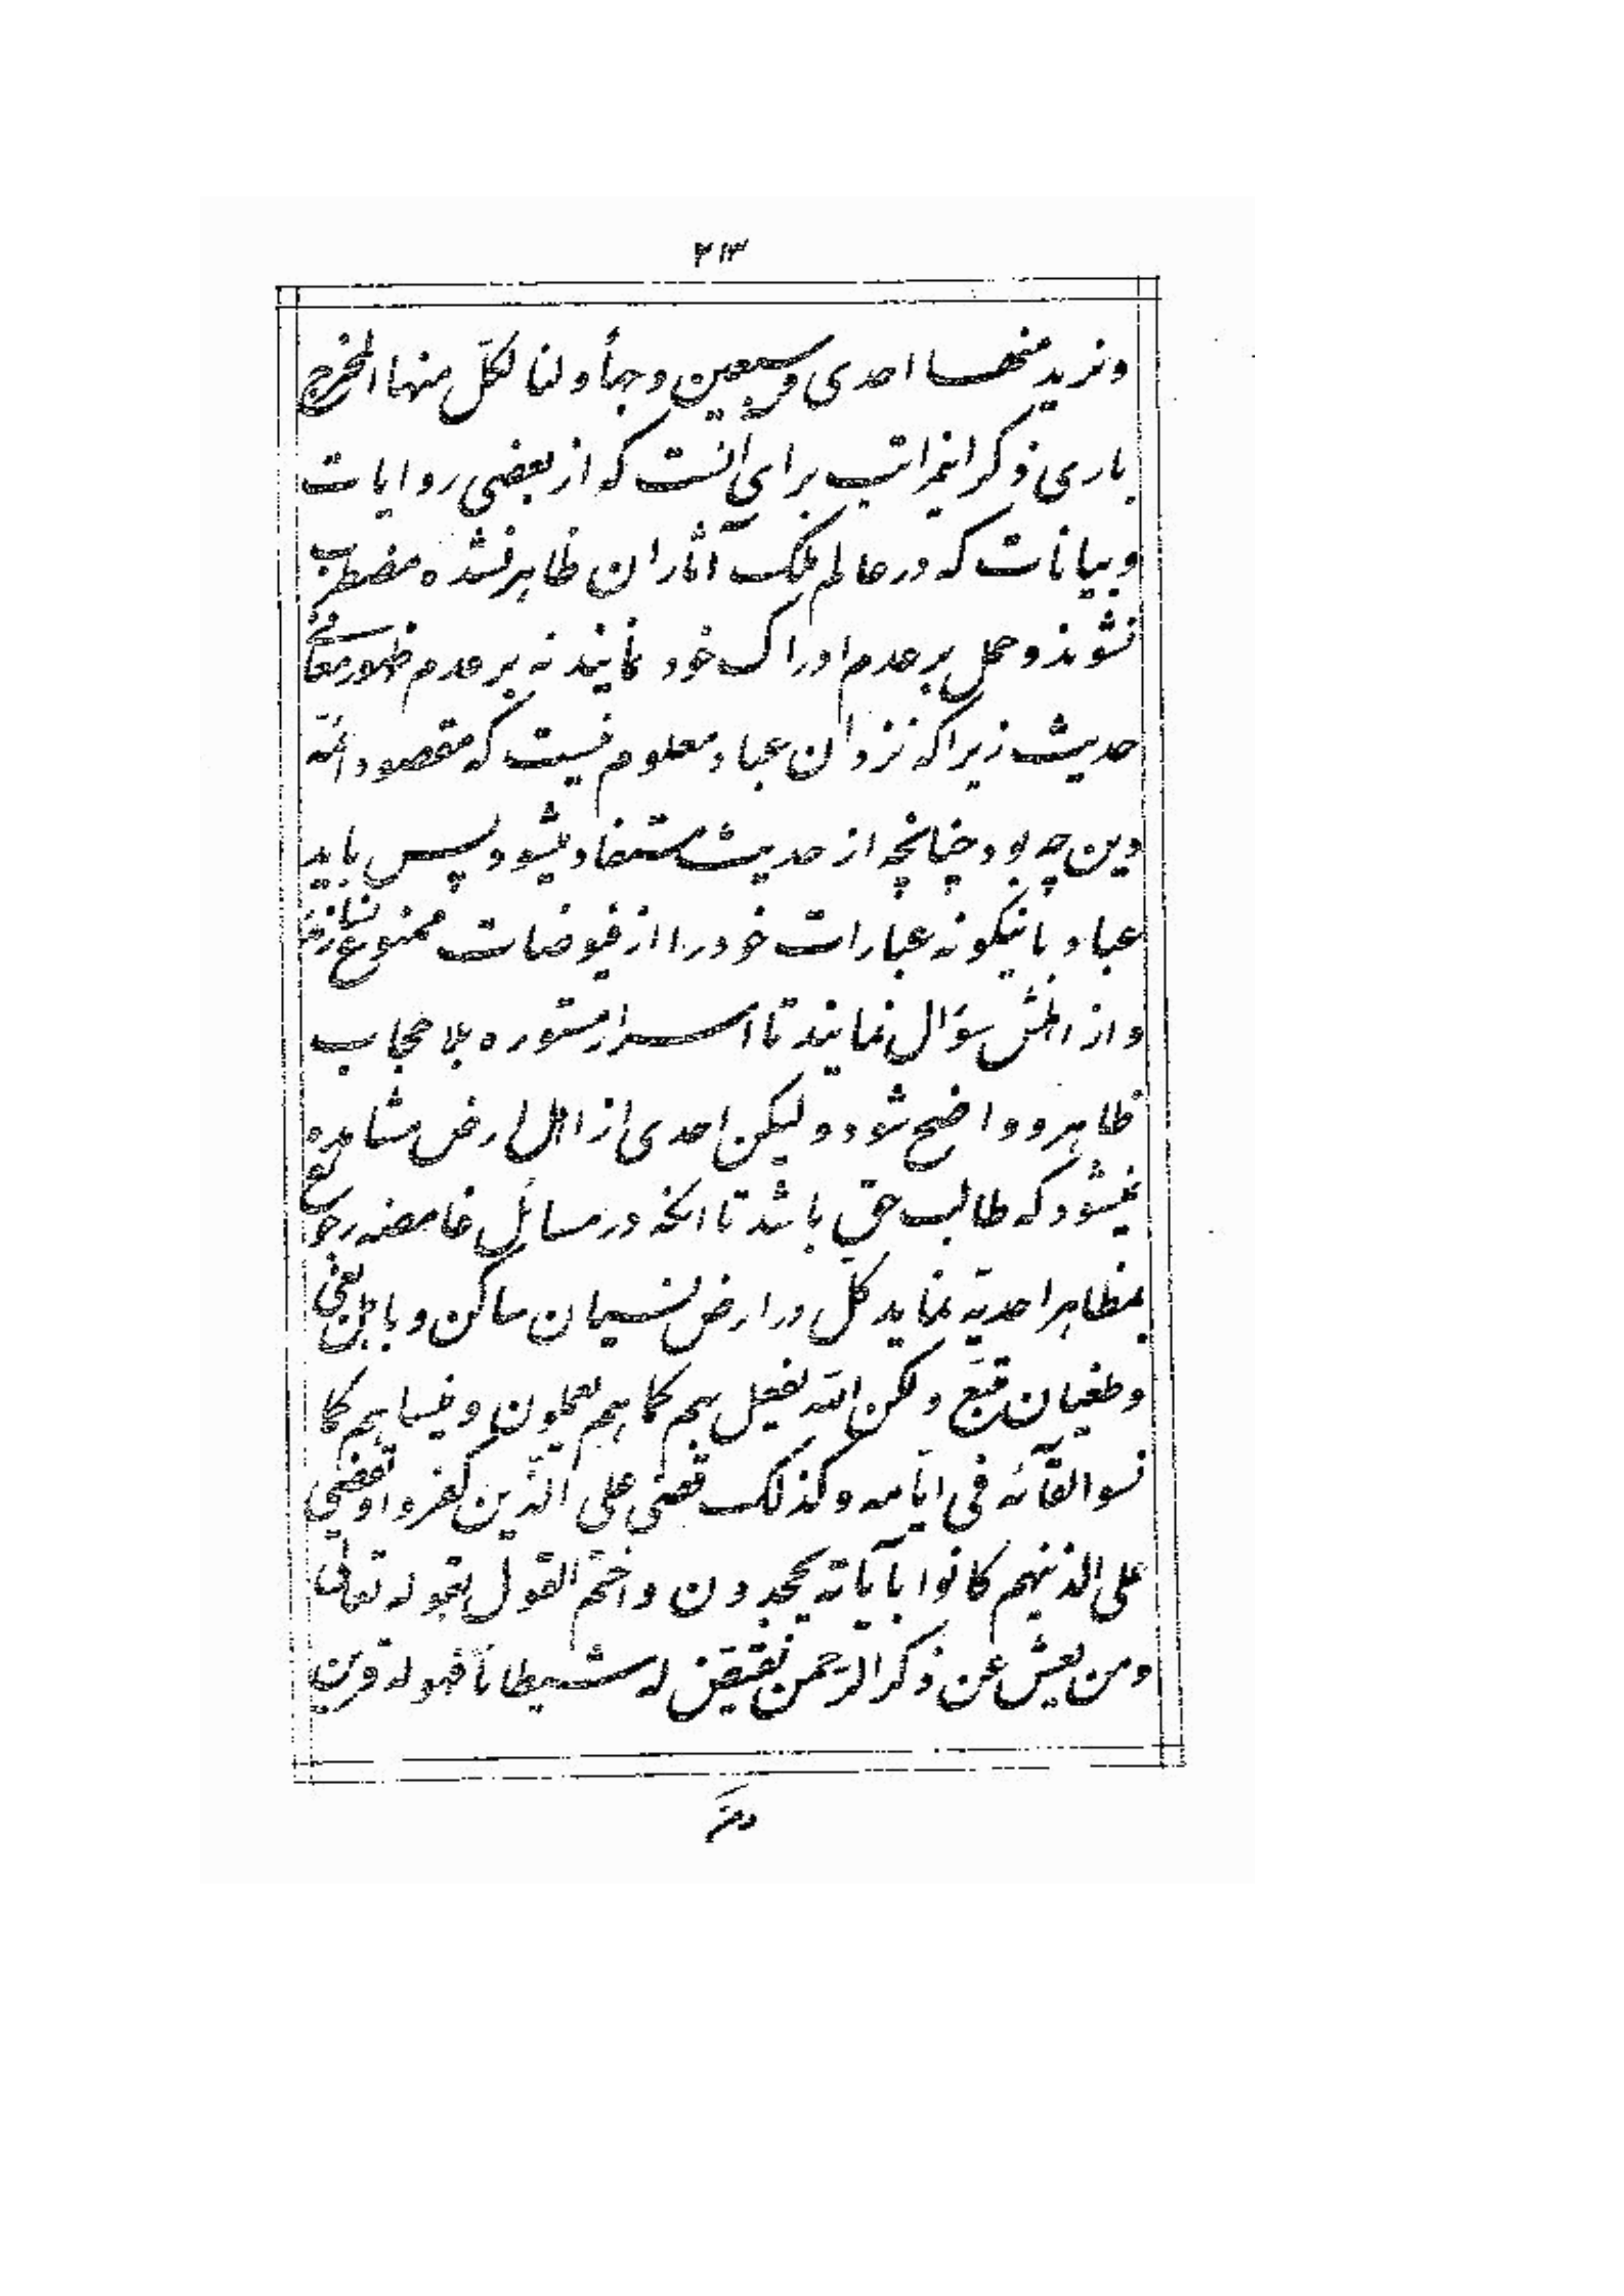 ۲۱۳
و نرید منها احدی و سبعین وجهاً و لنا لکلّ منها المخرج
باری ذکر اینمراتب برای آنست که از بعضی روایات
و بیانات که در عالم ملک آثار ان ظاهر نشده مضطرب
نشوند و حمل بر عدم ادراک خود نمایند نه بر عدم ظهور معانی
حدیث زیرا که نزد ان عباد معلوم نیست که مقصود ائمّه
دین چه بود چنانچه از حدیث مستفاد میشود پس باید
عباد باینگونه عبارات خود را از فیوضات ممنوع نسازند
و از اهلش سؤال نمایند تا اسرار مستوره بلا حجاب
ظاهر و واضح شود ولیکن احدی از اهل ارض مشاهده
نمیشود که طالب حقّ باشد تا انکه در مسائل غامضه رجوع
بمظاهر احدیّه نماید کلّ در ارض نسیان ساکن و باهل بغی
و طغیان متّبع ولکن اللّه یفعل بهم کما هم یعملون و ینساهم کما
نسوا لقآئه فی ایّامه و کذلک قضی علی الّذین کفروا و یقضی
علی الذینهم کانوا بآیاته یجحدون و اختم القول بقوله تعالی
و من یعش عن ذکر الرّحمن نقیّض له شیطاناً فهو له قرین
و من